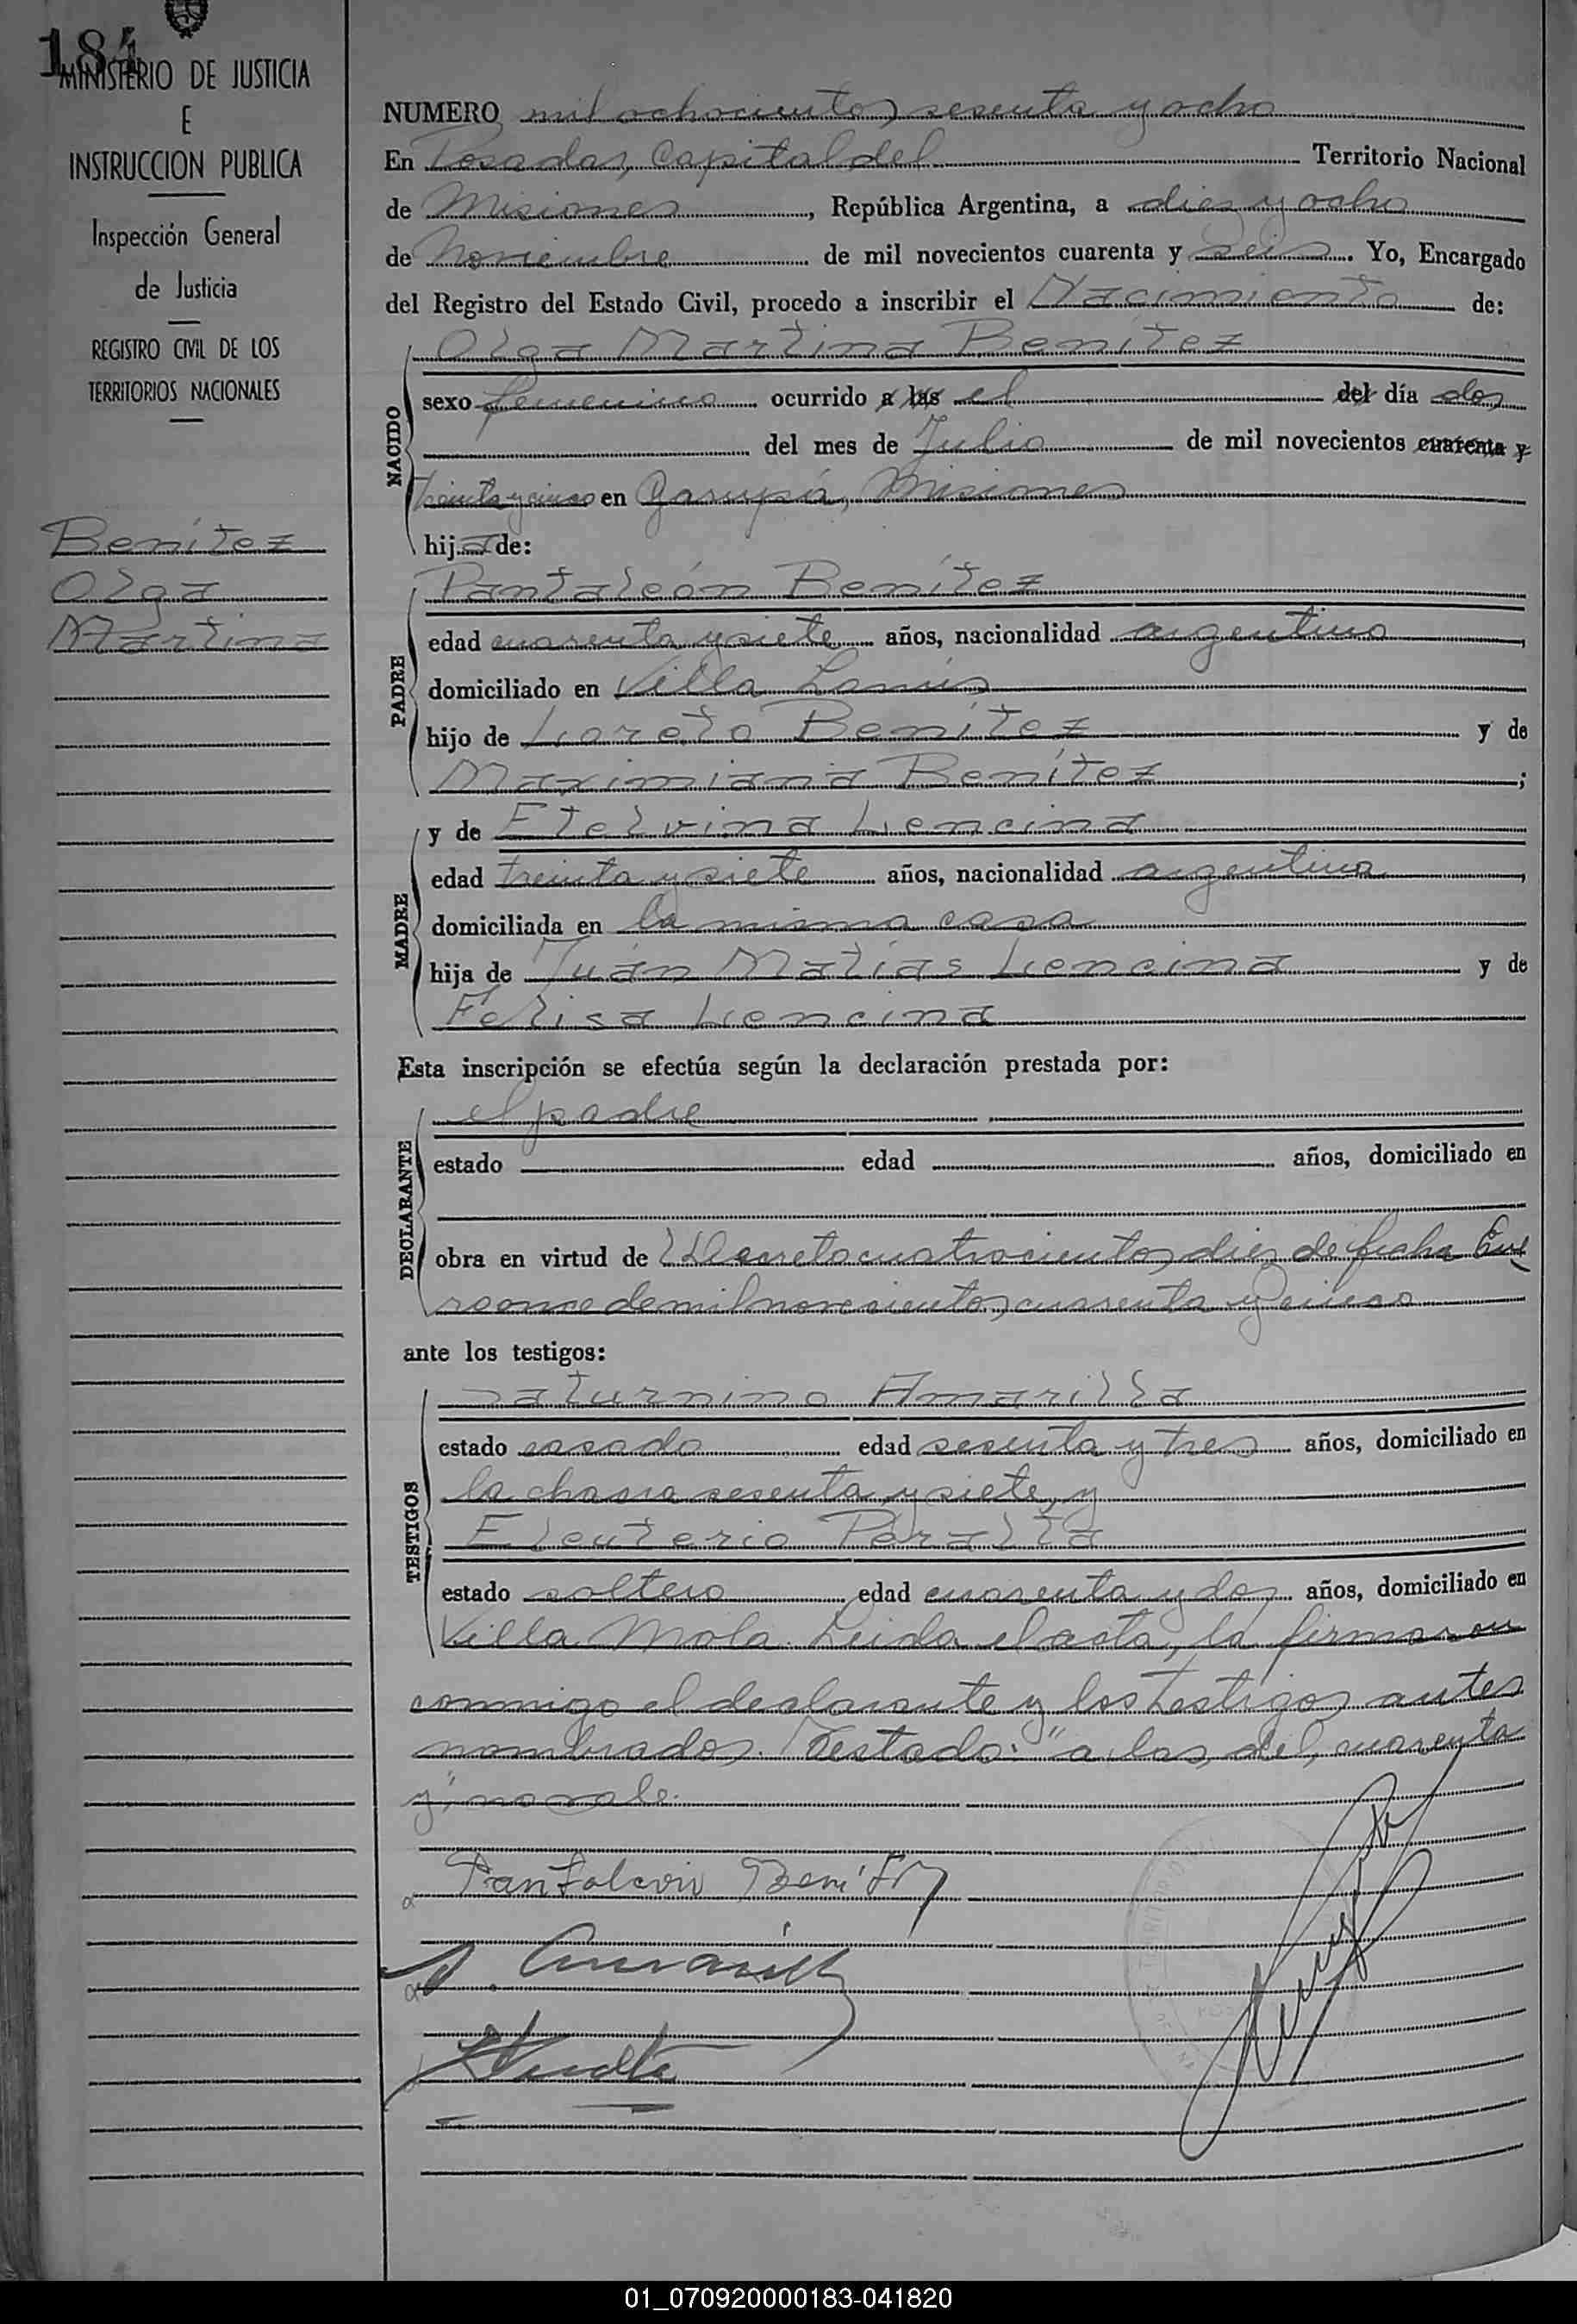 184
MINISTERIO DE JUSTICIA
E
INSTRUCCION PUBLICA
Inspección General
de Justicia
REGISTRO CIVIL DE LOS
TERRITORIOS NACIONALES
Benítez
Olga
Martina
NUMERO mil ochocientos sesenta y ocho
En Posadas, Capital del Territorio Nacional
de Misiones, República Argentina, a diez y ocho
de Noviembre de mil novecientos cuarenta y seis. Yo, Encargado
del Registro del Estado Civil, procedo a inscribir el Nacimiento de:
NACIDO
Olga Martina Benítez
sexo femenino ocurrido a las el del día dos
del mes de Julio de mil novecientos cuarenta y
treinta y cinco en Garupá, Misiones
hija de:
PADRE
Pantaleón Benítez
edad cuarenta y siete años, nacionalidad argentino,
domiciliado en Villa Lanús
hijo de Loreto Benítez y de
Maximiana Benítez;
MADRE
y de Etelvina Lencina
edad treinta y siete años, nacionalidad argentina,
domiciliada en la misma casa
hija de Juán Matías Lencina y de
Felisa Lencina
Esta inscripción se efectúa según la declaración prestada por:
DECLARANTE
el padre
estado edad años, domiciliado en
obra en virtud de Decreto cuatrocientos diez de fecha Ene
ro once de mil novecientos cuarenta y cinco
ante los testigos:
TESTIGOS
Saturnino Amarilla
estado casado edad sesenta y tres años, domiciliado en
la chacra sesenta y siete, y
Eleuterio Peralta
estado soltero edad cuarenta y dos años, domiciliado en
Villa Mola. Leida el acta, la firmaron
conmigo el declarante y los testigos antes
nombrados. Testado: "a las, del, cuarenta
y", no vale.
Pantaleon Benítez
S. Amarilla
01_070920000183-041820